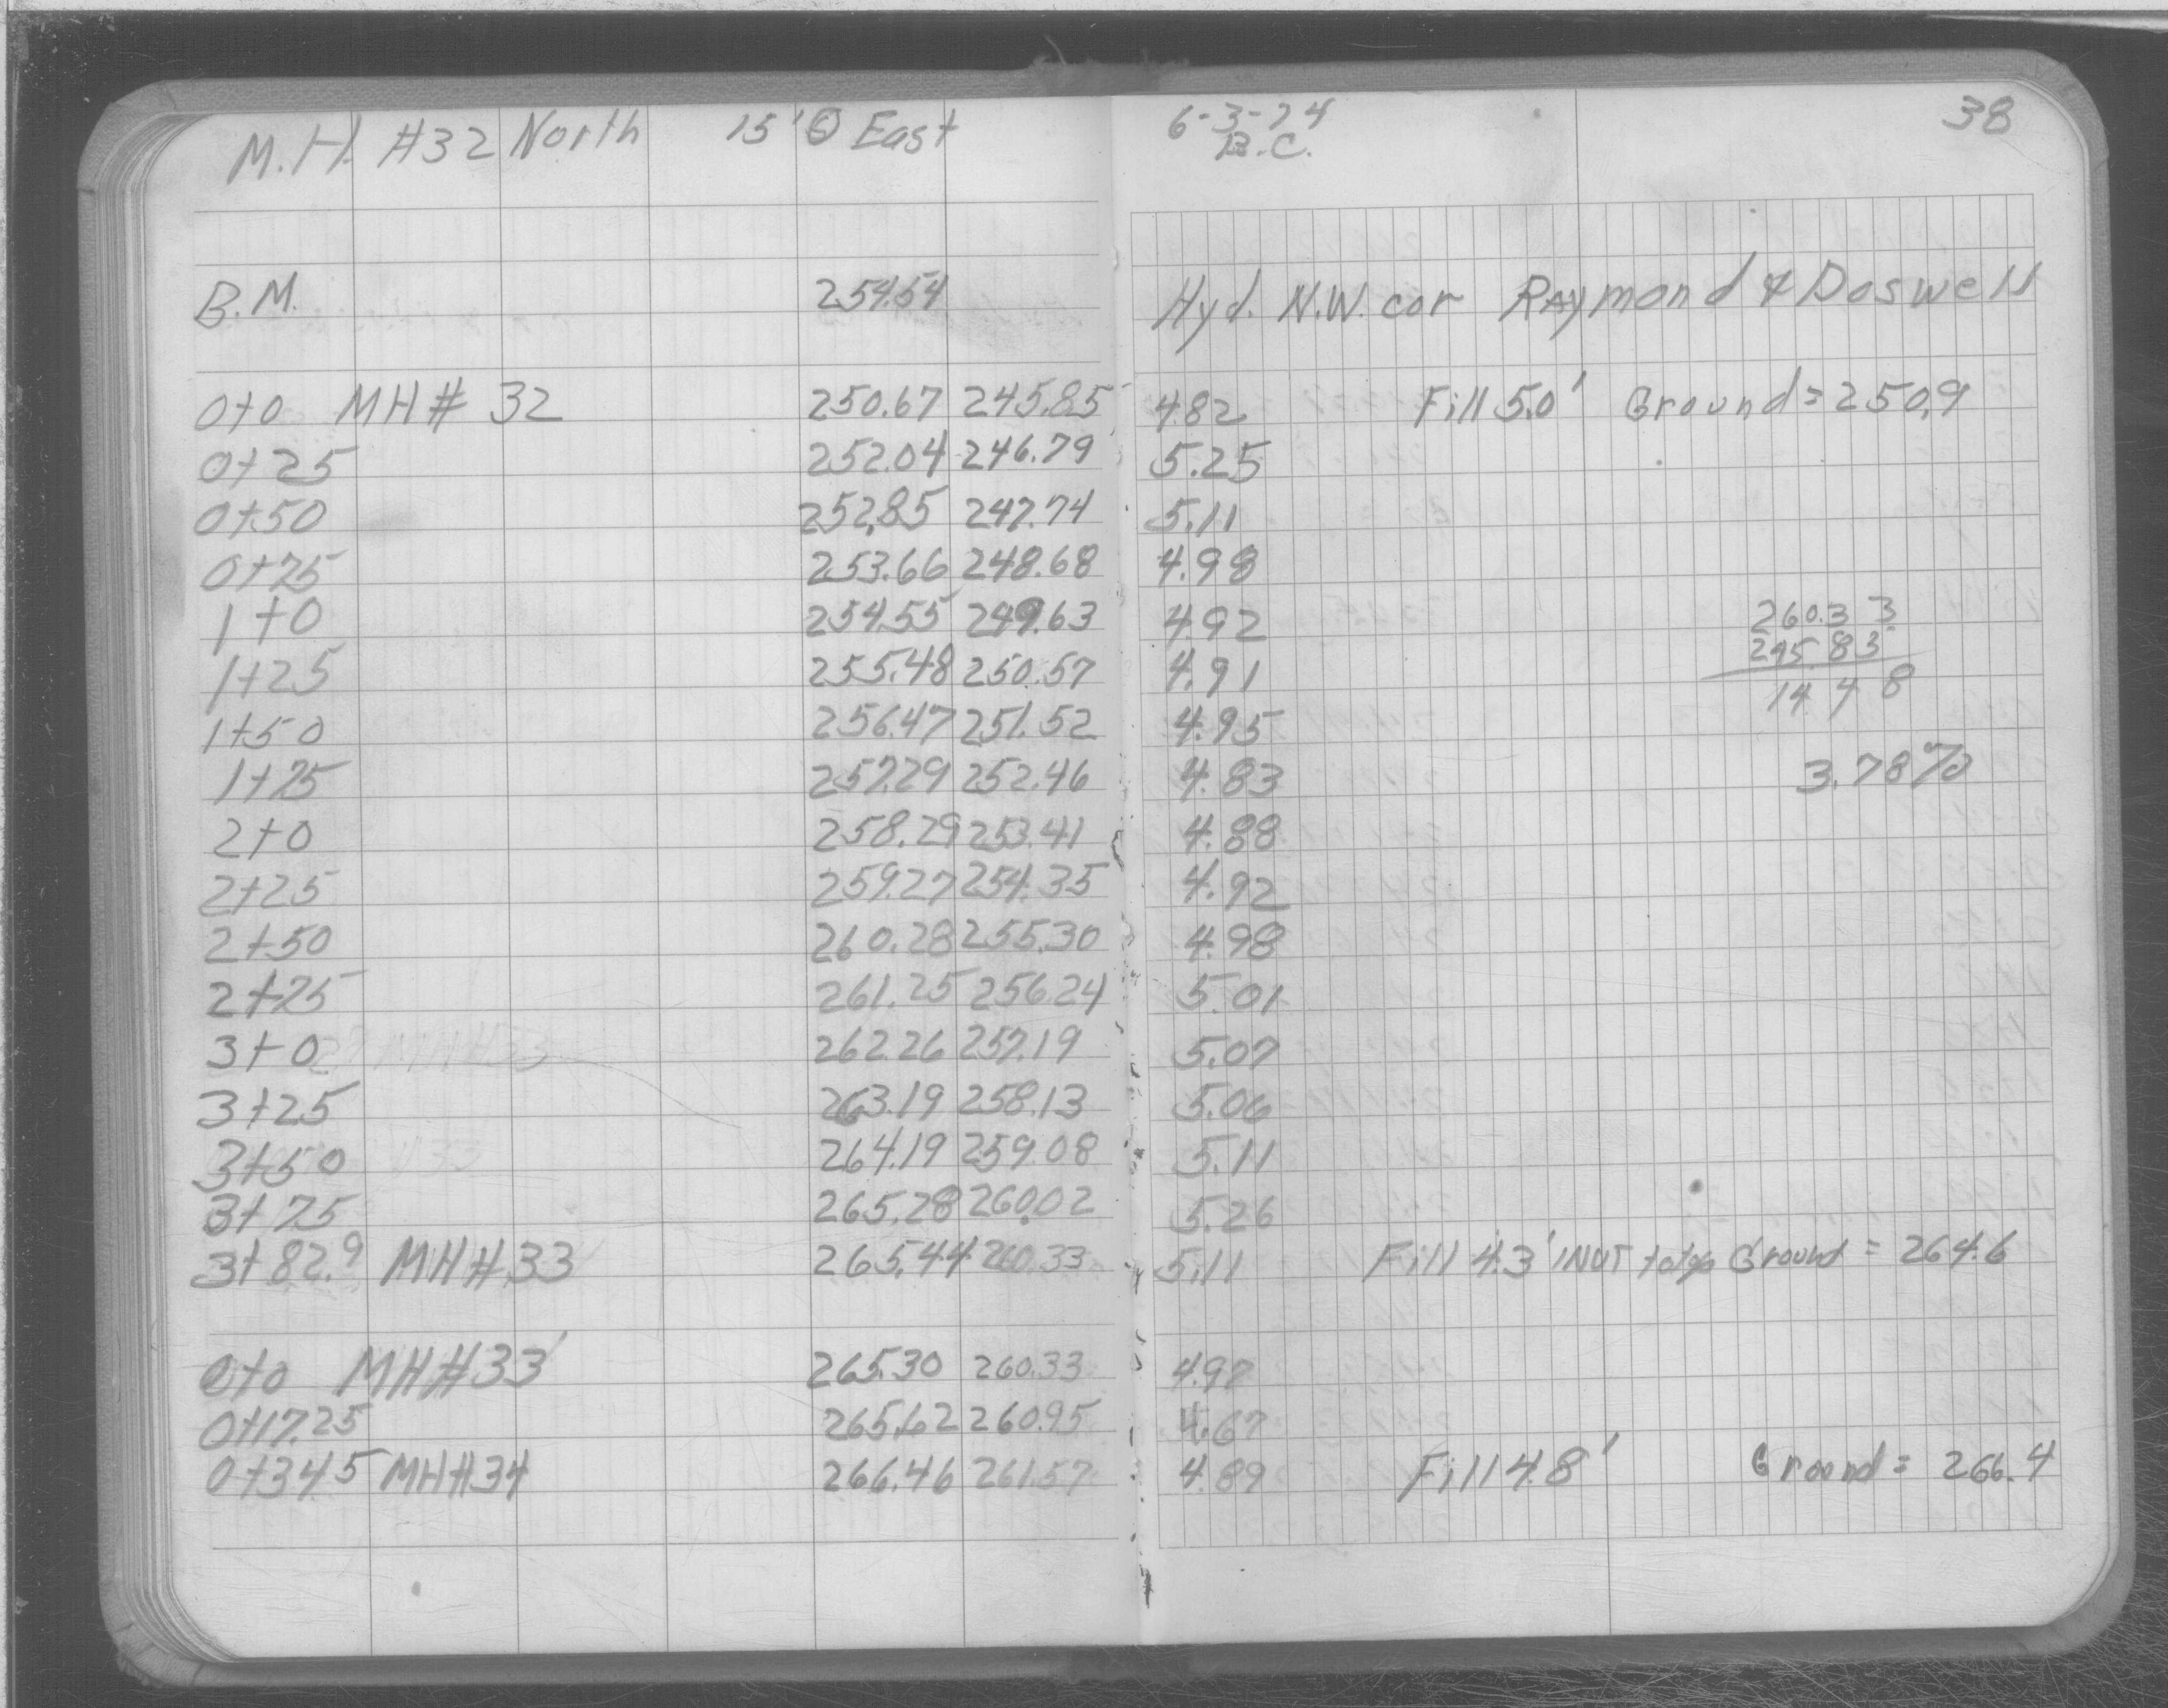 M.H. #32 North 15' @ East 6-3-74 38
B.C.
B.M. 254.54 Hyd. N.W. cor Raymond & Doswell
0+0 MH# 32 250.67 245.85 4.82 Fill 5.0' Ground = 250.9
0+25 252.04 246.79 5.25
0+50 252.85 247.74 5.11
0+75 253.66 248.68 4.98
1+0 254.55 249.63 4.92 260.33
1+25 255.48 250.57 4.91 245.85
14 48
1+50 256.47 251.52 4.95
1+75 257.29 252.46 4.83 3.78%
2+0 258.29 253.41 4.88
2+25 259.27 254.35 4.92
2+50 260.28 255.30 4.98
2+75 261.25 256.24 5.01
3+0 262.26 257.19 5.07
3+25 263.19 258.13 5.06
3+50 264.19 259.08 5.11
3+75 265.28 260.02 5.26
3+82.9 MH#33 265.44 260.33 5.11 Fill 4.3' Ground = 264.6
0+0 MH#33 265.30 260.33 4.97
0+17.25 265.62 260.95 4.67
0+34.5 MH#34 266.46 261.57 4.89 Fill 4.8' Ground = 266.4